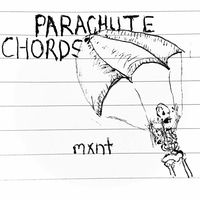 PARACHUTE
CHORDS
mxnt